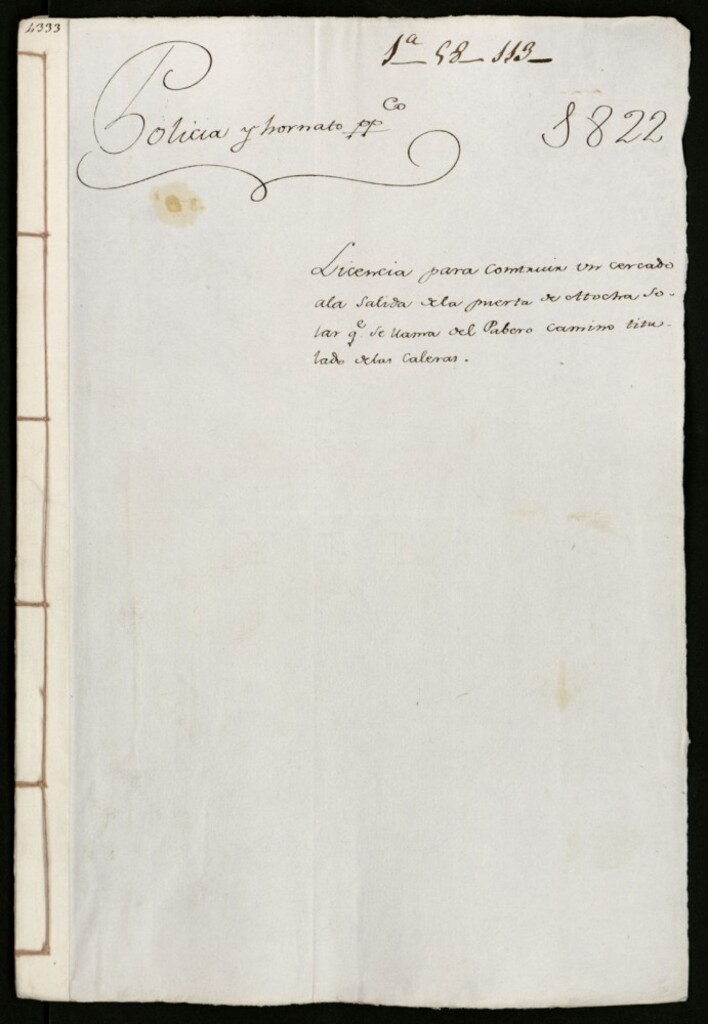 4333
1ª 58 113
Policia y hornato pp^co
1822
Licencia para Construir un cercado
ala Salida dela puerta de Attocha So-
lar q^e Se llama del Pabero Camino titu-
lado delas Caleras.